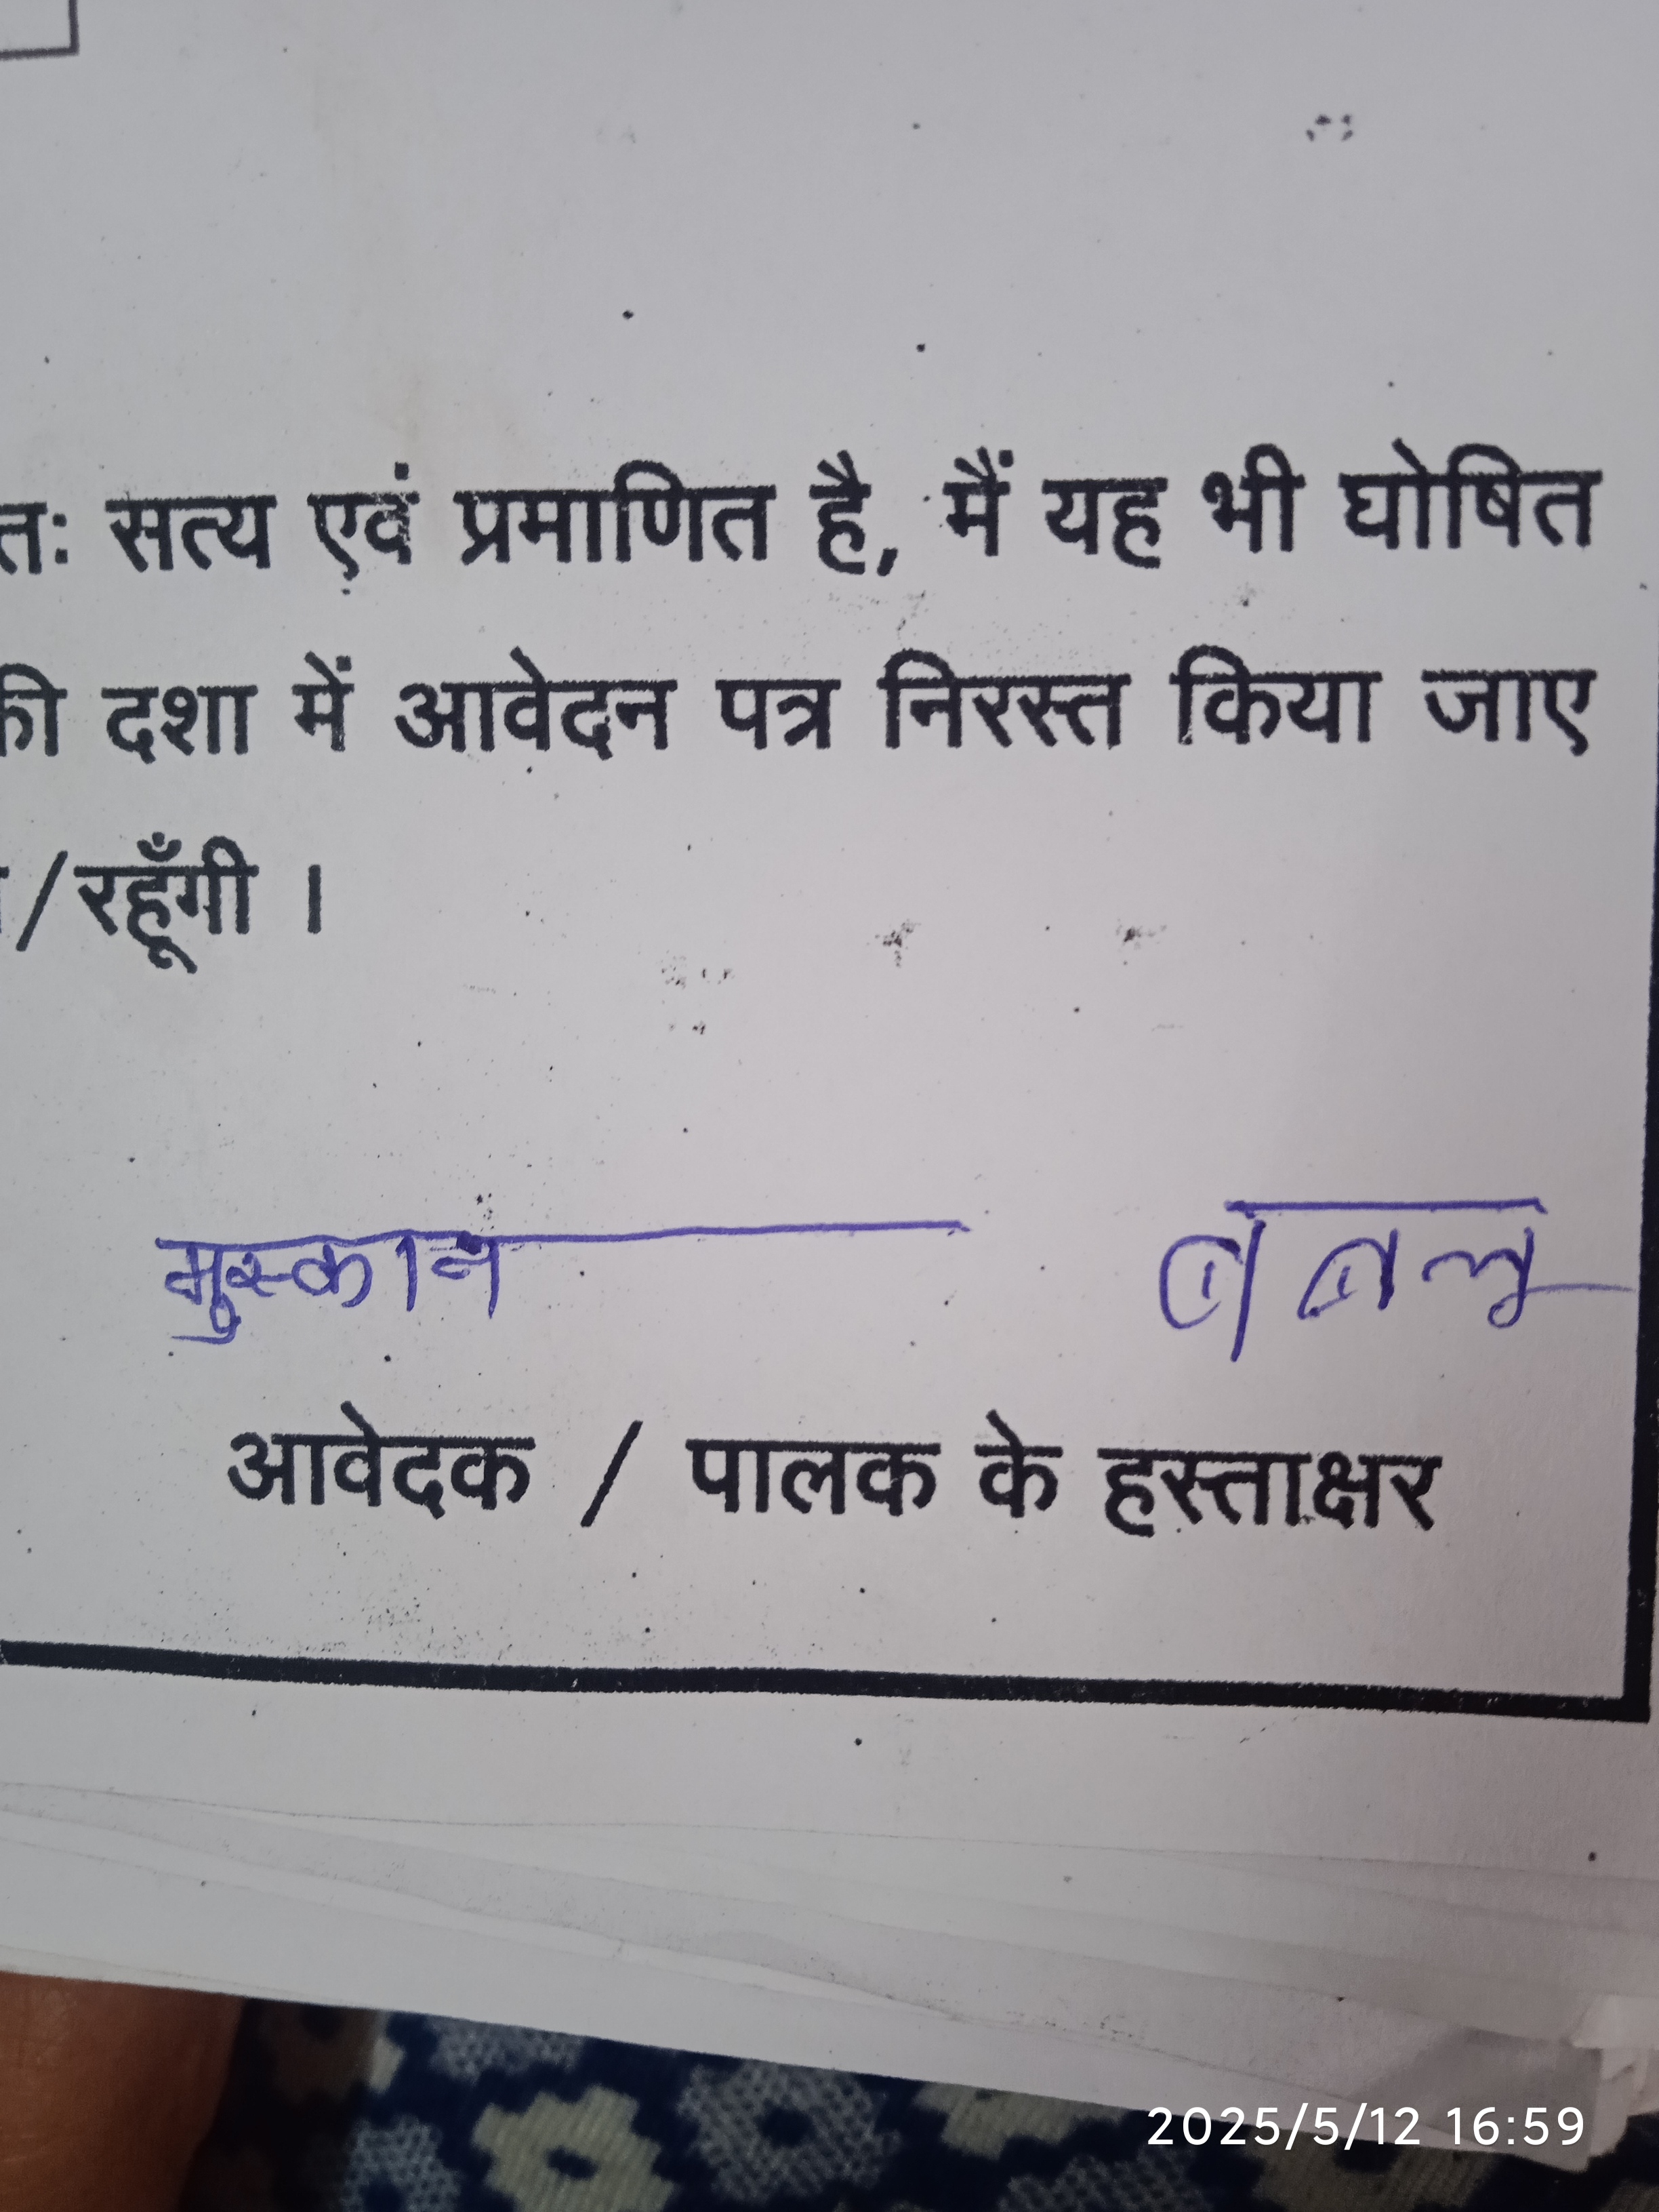 तः सत्य एवं प्रमाणित है, मैं यह भी घोषित
की दशा में आवेदन पत्र निरस्त किया जाए
/रहूँगी ।
मुस्कान बबलू
आवेदक / पालक के हस्ताक्षर
2025/5/12 16:59